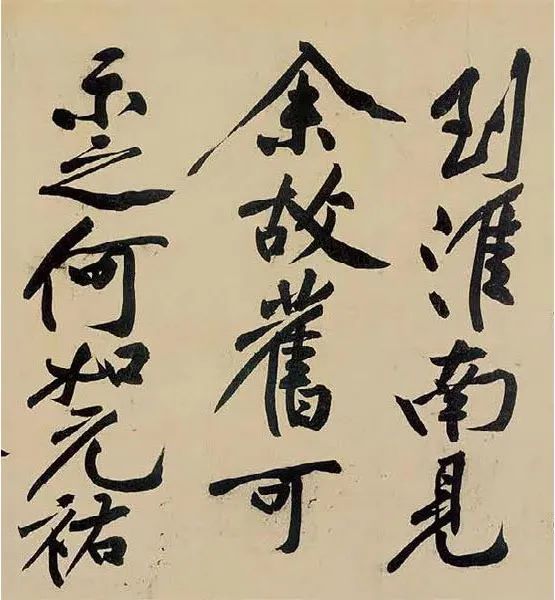 到淮南見
余故舊可
示之何如元祐